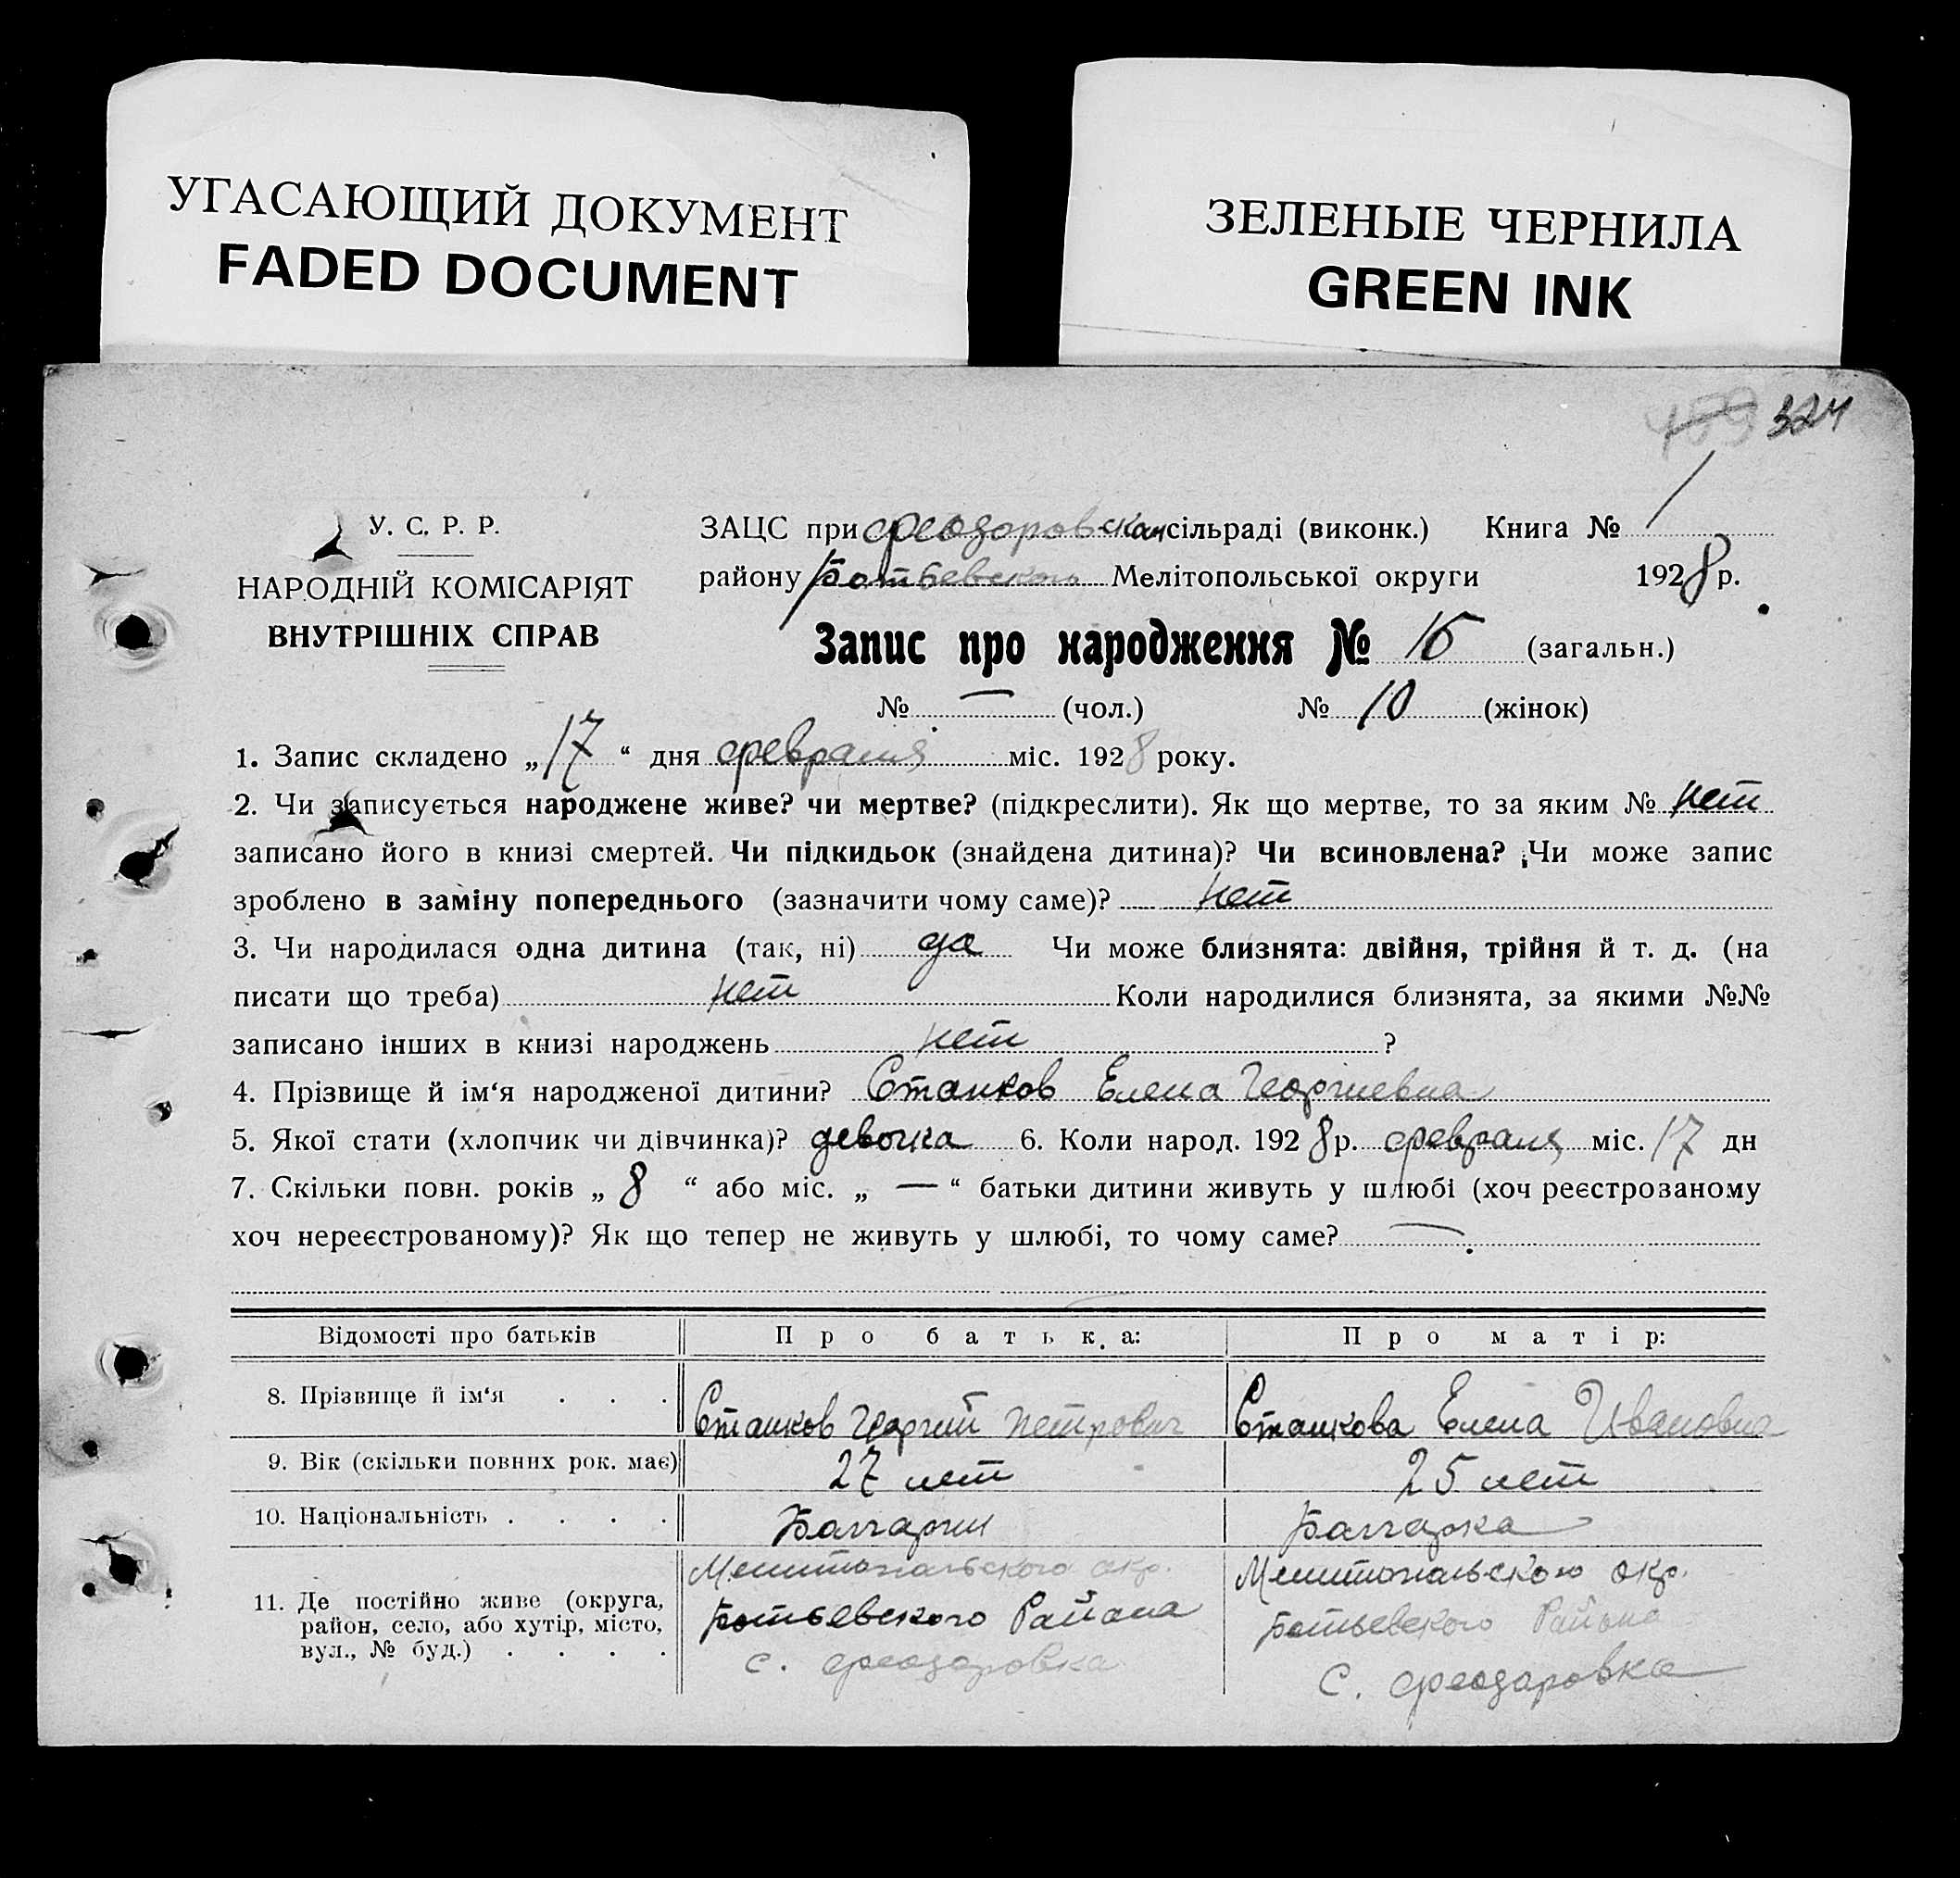 УГАСАЮЩИЙ ДОКУМЕНТ
FADED DOCUMENT
ЗЕЛЕНЫЕ ЧЕРНИЛА
GREEN INK
324
У. С. Р. Р.
НАРОДНІЙ КОМІСАРІЯТ
ВНУТРІШНІХ СПРАВ
ЗАЦС при Феодоровском сільраді (виконк.) Книга № 1
району Ботьевского Мелітопольської округи 1928 р.
Запис про народження № 15 (загальн.)
№ — (чол.) № 10 (жінок)
1. Запис складено „17“ дня февраля міс. 1928 року.
2. Чи записується народжене живе? чи мертве? (підкреслити). Як що мертве, то за яким № нет
записано його в книзі смертей. Чи підкидьок (знайдена дитина)? Чи всиновлена? Чи може запис
зроблено в заміну попереднього (зазначити чому саме)? нет
3. Чи народилася одна дитина (так, ні) да Чи може близнята: двійня, трійня й т. д. (на
писати що треба) нет Коли народилися близнята, за якими №№
записано інших в книзі народжень нет ?
4. Прізвище й ім‘я народженої дитини? Станков Елена Георгиевна
5. Якої стати (хлопчик чи дівчинка)? девочка 6. Коли народ. 1928 р. февраля міс. 17 дн
7. Скільки повн. років „ 8 “ або міс. „ — “ батьки дитини живуть у шлюбі (хоч реєстрозаному
хоч нереєстрованому)? Як що тепер не живуть у шлюбі, то чому саме? —
Відомості про батьків Про батька: Про матір:
8. Прізвище й ім‘я . . . Станков Георгий Петрович Станкова Елена Ивановна
9. Вік (скільки повних рок. має) 27 лет 25 лет
10. Національність . . . . Болгарин Болгарка
11. Де постійно живе (округа, район, село, або хутір, місто, вул., № буд.) . . . .
Мелитопольского окр.
Ботьевского Района
с. Феодоровка
Мелитопольского окр.
Ботьевского Района
с. Феодоровка